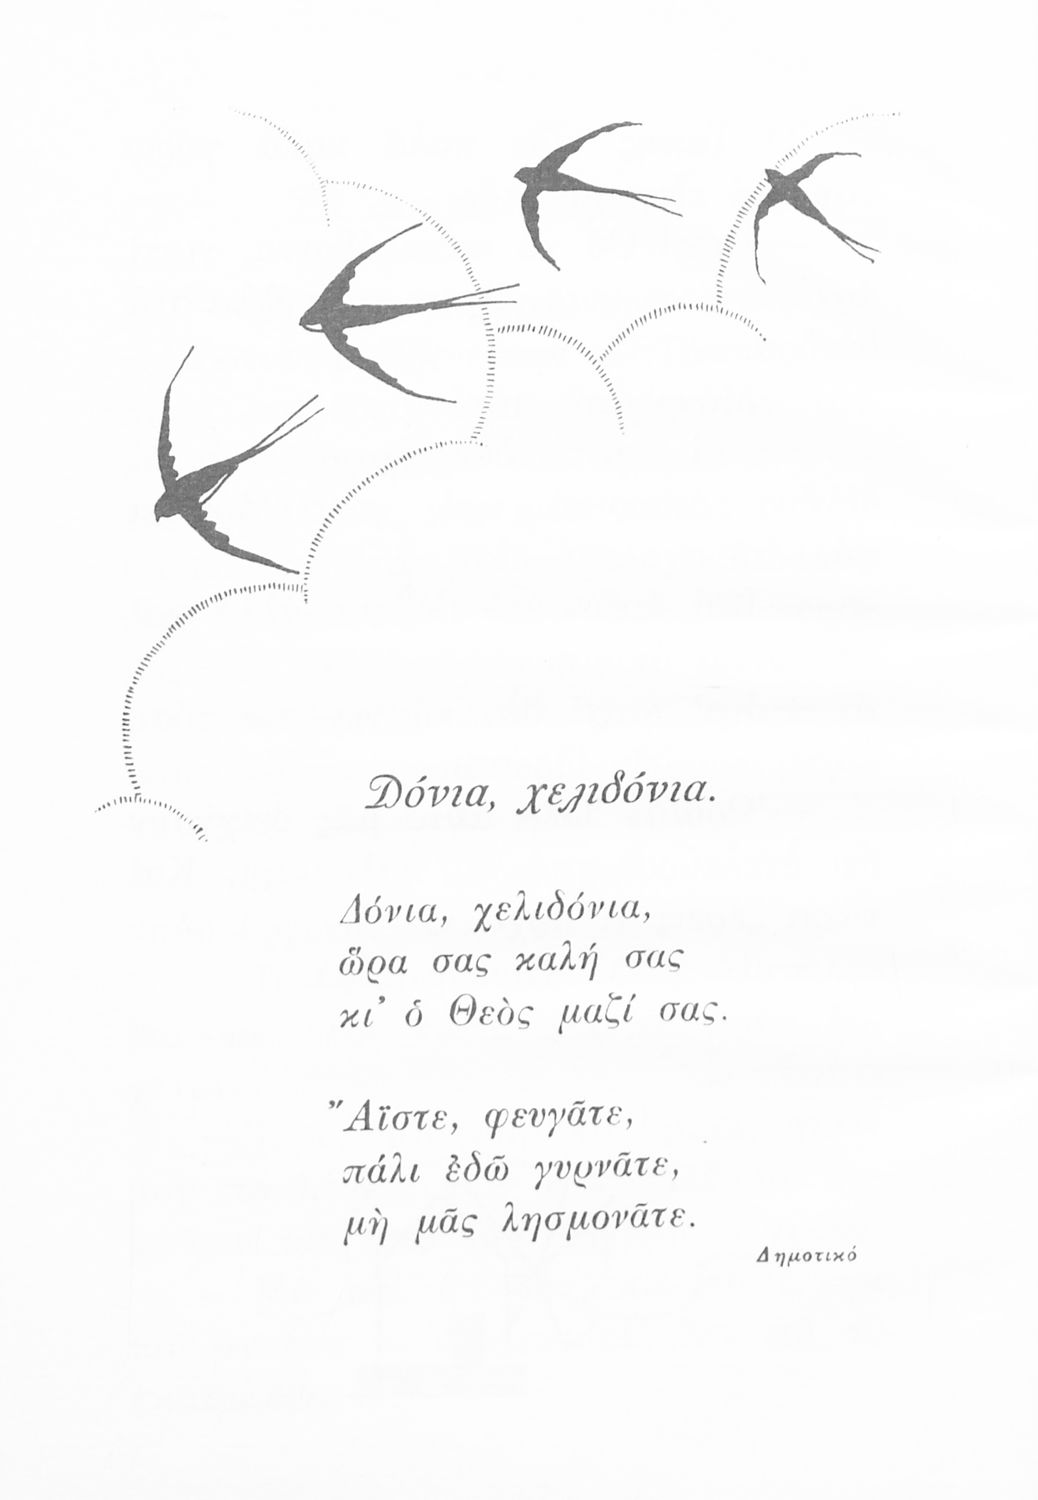 Δόνια, χελιδόνια.
Δόνια, χελιδόνια,
ὥρα σας καλή σας
κι’ ὁ Θεὸς μαζί σας.
Ἄϊστε, φευγᾶτε,
πάλι ἐδῶ γυρνᾶτε,
μὴ μᾶς λησμονᾶτε.
Δημοτικό